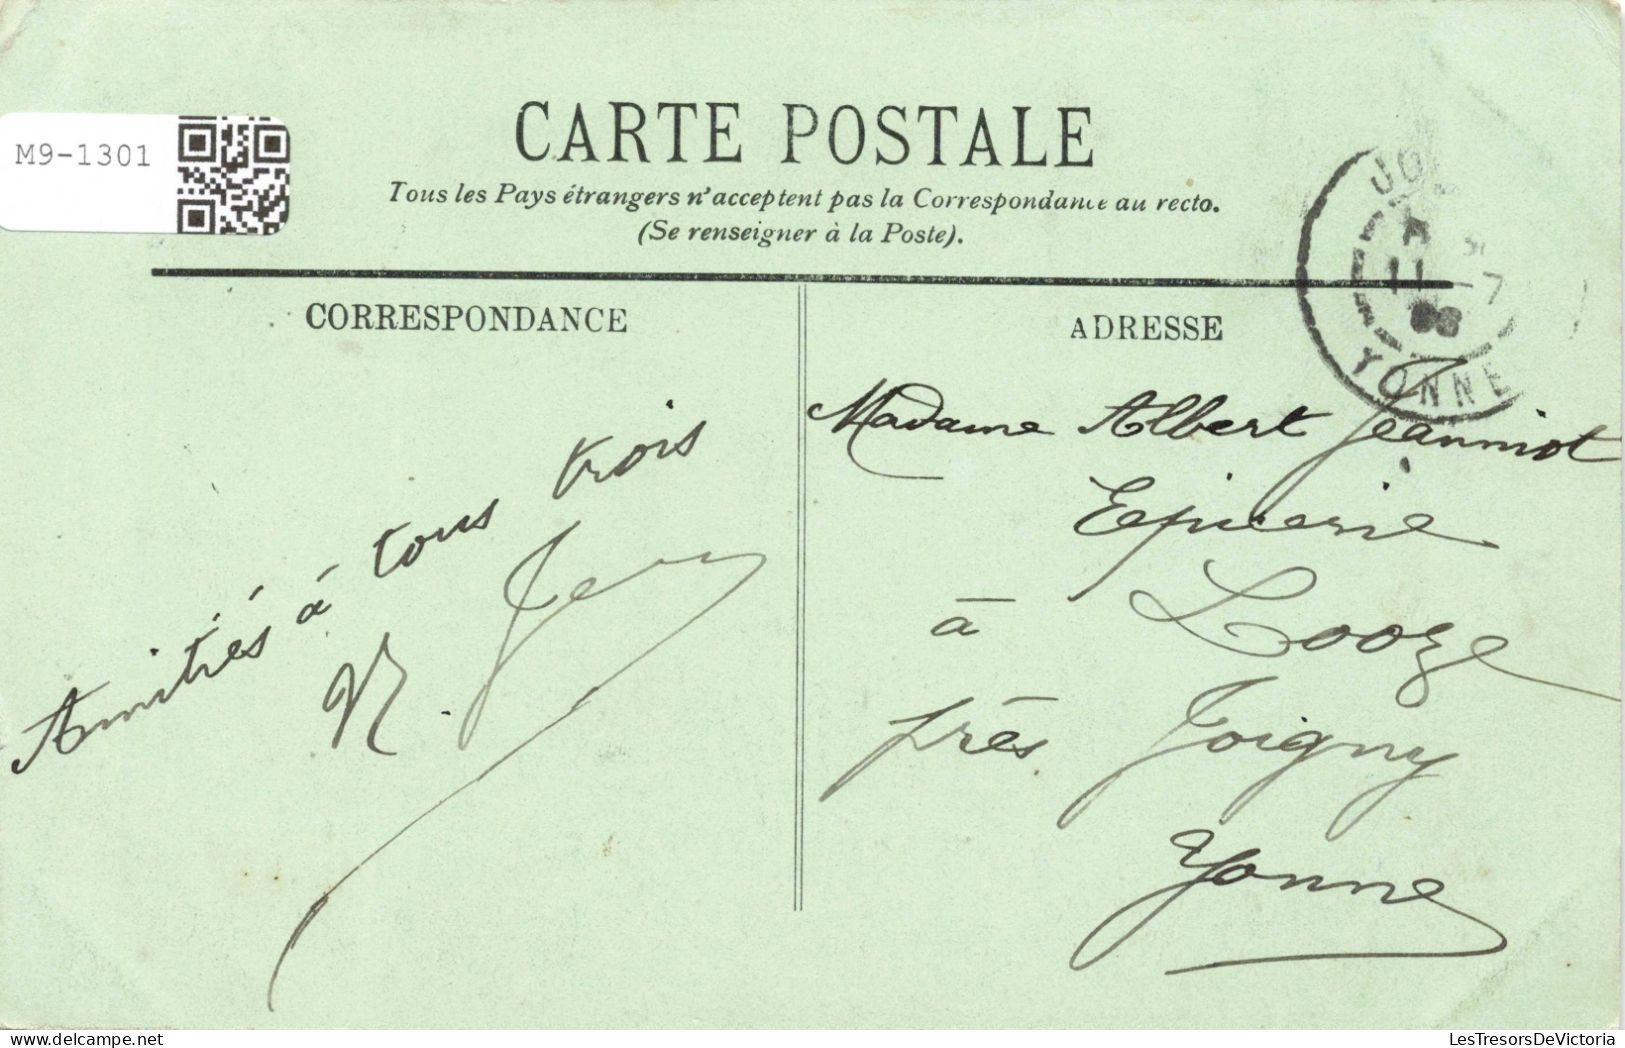 M9-1301
CARTE POSTALE
Tous les Pays étrangers n'acceptent pas la Correspondance au recto.
(Se renseigner à la Poste).
CORRESPONDANCE
Amitiés à tous trois
ADRESSE
11 -7
YONNE
Madame Albert Jeanniot
Epicerie
à Looze
près Joigny
Yonne
LesTresorsDeVictoria